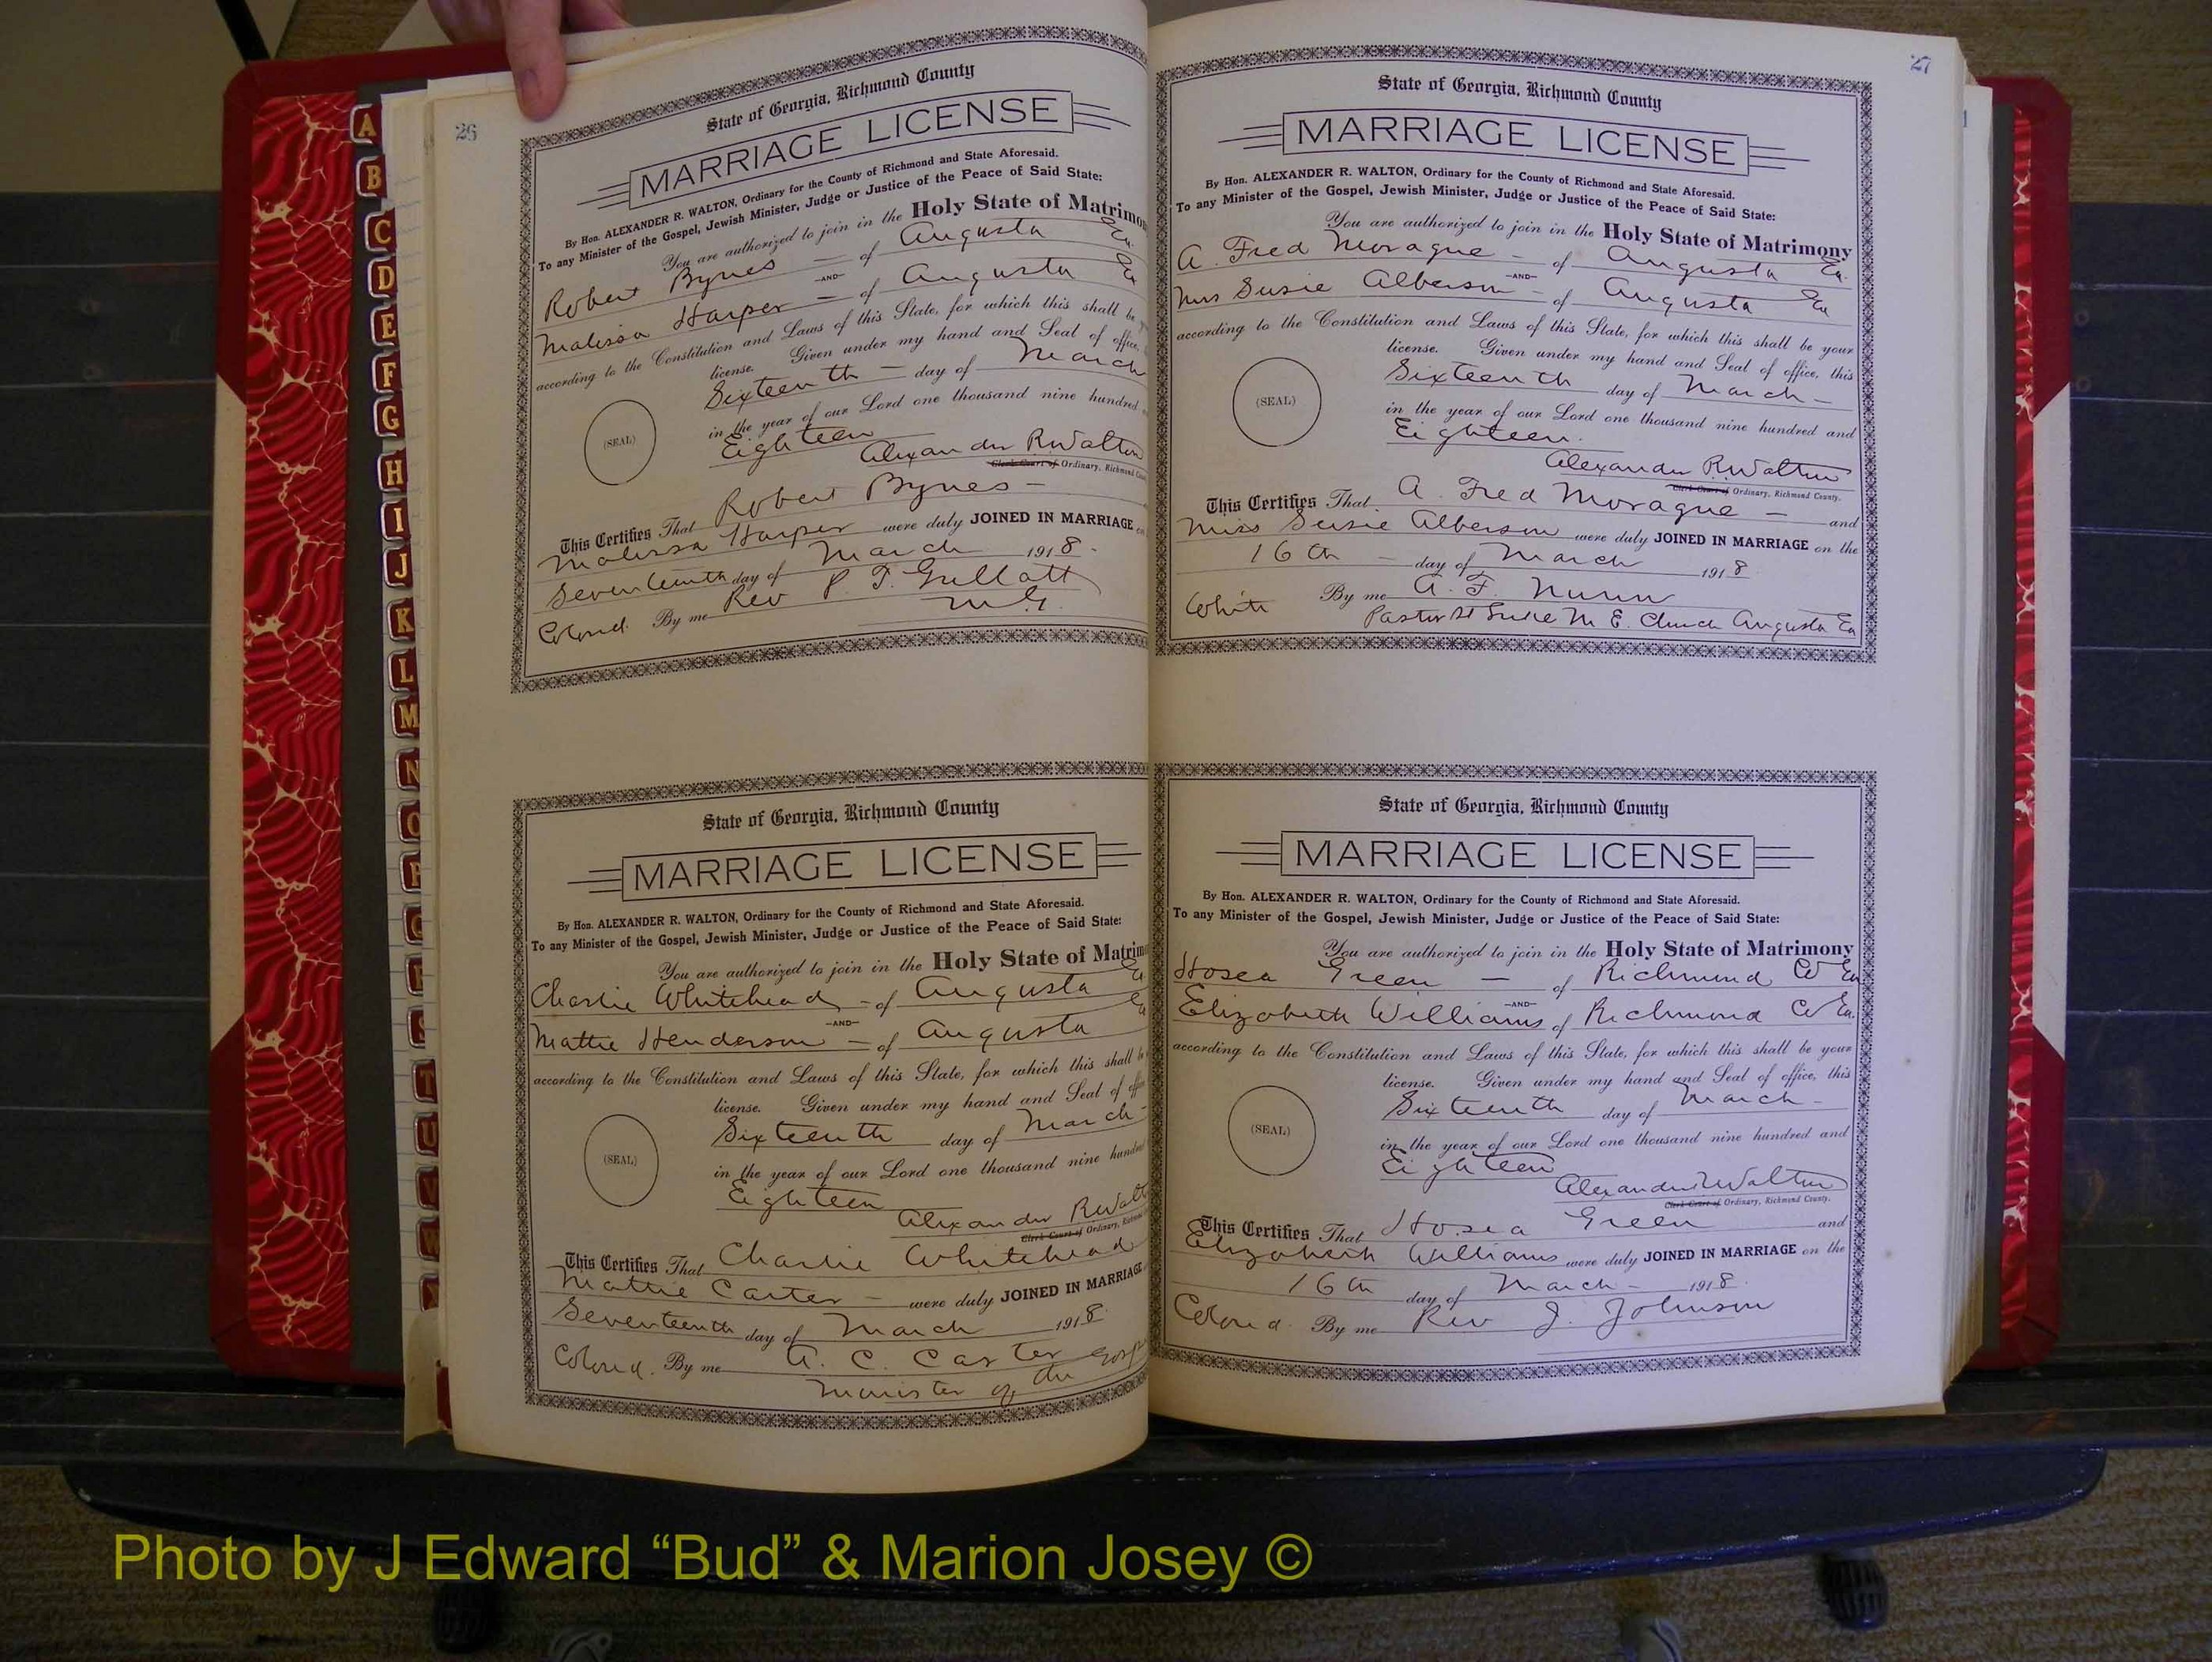 A
B
C
D
E
F
G
H
I
J
K
L
M
N
O
P
T
U
V
W
26
State of Georgia, Richmond County
MARRIAGE LICENSE
By Hon. ALEXANDER R. WALTON, Ordinary for the County of Richmond and State Aforesaid.
To any Minister of the Gospel, Jewish Minister, Judge or Justice of the Peace of Said State:
You are authorized to join in the Holy State of Matrimo
Robert Bynes - of Augusta Ga.
-AND-
Malissa Harper - of Augusta Ga
according to the Constitution and Laws of this State, for which this shall be
license. Given under my hand and Seal of office,
(SEAL)
Sixteenth - day of March
in the year of our Lord one thousand nine hundred
Eighteen
Alexander R Walton
Clerk Court of Ordinary, Richmond
This Certifies That Robert Bynes -
Malissa Harper were duly JOINED IN MARRIAGE
Seventeenth day of March 1918.
Colored. By me Rev P. T. Gullatt
M. G.
State of Georgia, Richmond County
MARRIAGE LICENSE
By Hon. ALEXANDER R. WALTON, Ordinary for the County of Richmond and State Aforesaid.
To any Minister of the Gospel, Jewish Minister, Judge or Justice of the Peace of Said State:
You are authorized to join in the Holy State of Matrim
Charlie Whitehead - of Augusta Ga
-AND-
Mattie Henderson - of Augusta Ga
according to the Constitution and Laws of this State, for which this shall be
license. Given under my hand and Seal of office
(SEAL)
Sixteenth day of March -
in the year of our Lord one thousand nine hundred
Eighteen
Alexander R Walt
Clerk Court of Ordinary, Richmond
This Certifies That Charlie Whitehead
Mattie Carter - were duly JOINED IN MARRIAGE
Seventeenth day of March 1918.
Colored. By me A. C. Carter
Minister of the Gosp
27
State of Georgia, Richmond County
MARRIAGE LICENSE
By Hon. ALEXANDER R. WALTON, Ordinary for the County of Richmond and State Aforesaid.
To any Minister of the Gospel, Jewish Minister, Judge or Justice of the Peace of Said State:
You are authorized to join in the Holy State of Matrimony
A. Fred Moragne - of Augusta Ga.
-AND-
Miss Susie Alberson - of Augusta Ga
according to the Constitution and Laws of this State, for which this shall be your
license. Given under my hand and Seal of office, this
(SEAL)
Sixteenth day of March -
in the year of our Lord one thousand nine hundred and
Eighteen.
Alexander R Walton
Clerk Court of Ordinary, Richmond County.
This Certifies That A. Fred Moragne - and
Miss Susie Alberson were duly JOINED IN MARRIAGE on the
16th - day of March 1918
White By me A. F. Nunn
Pastor St Luke M E. Church Augusta Ga
State of Georgia, Richmond County
MARRIAGE LICENSE
By Hon. ALEXANDER R. WALTON, Ordinary for the County of Richmond and State Aforesaid.
To any Minister of the Gospel, Jewish Minister, Judge or Justice of the Peace of Said State:
You are authorized to join in the Holy State of Matrimony
Hosea Green - of Richmond Co Ga
-AND-
Elizabeth Williams of Richmond Co Ga.
according to the Constitution and Laws of this State, for which this shall be your
license. Given under my hand and Seal of office, this
(SEAL)
Sixteenth day of March -
in the year of our Lord one thousand nine hundred and
Eighteen
Alexander R Walton
Clerk Court of Ordinary, Richmond County.
This Certifies That Hosea Green and
Elizabeth Williams were duly JOINED IN MARRIAGE on the
16th day of March - 1918.
Colored. By me Rev J. Johnson
Photo by J Edward “Bud” & Marion Josey ©